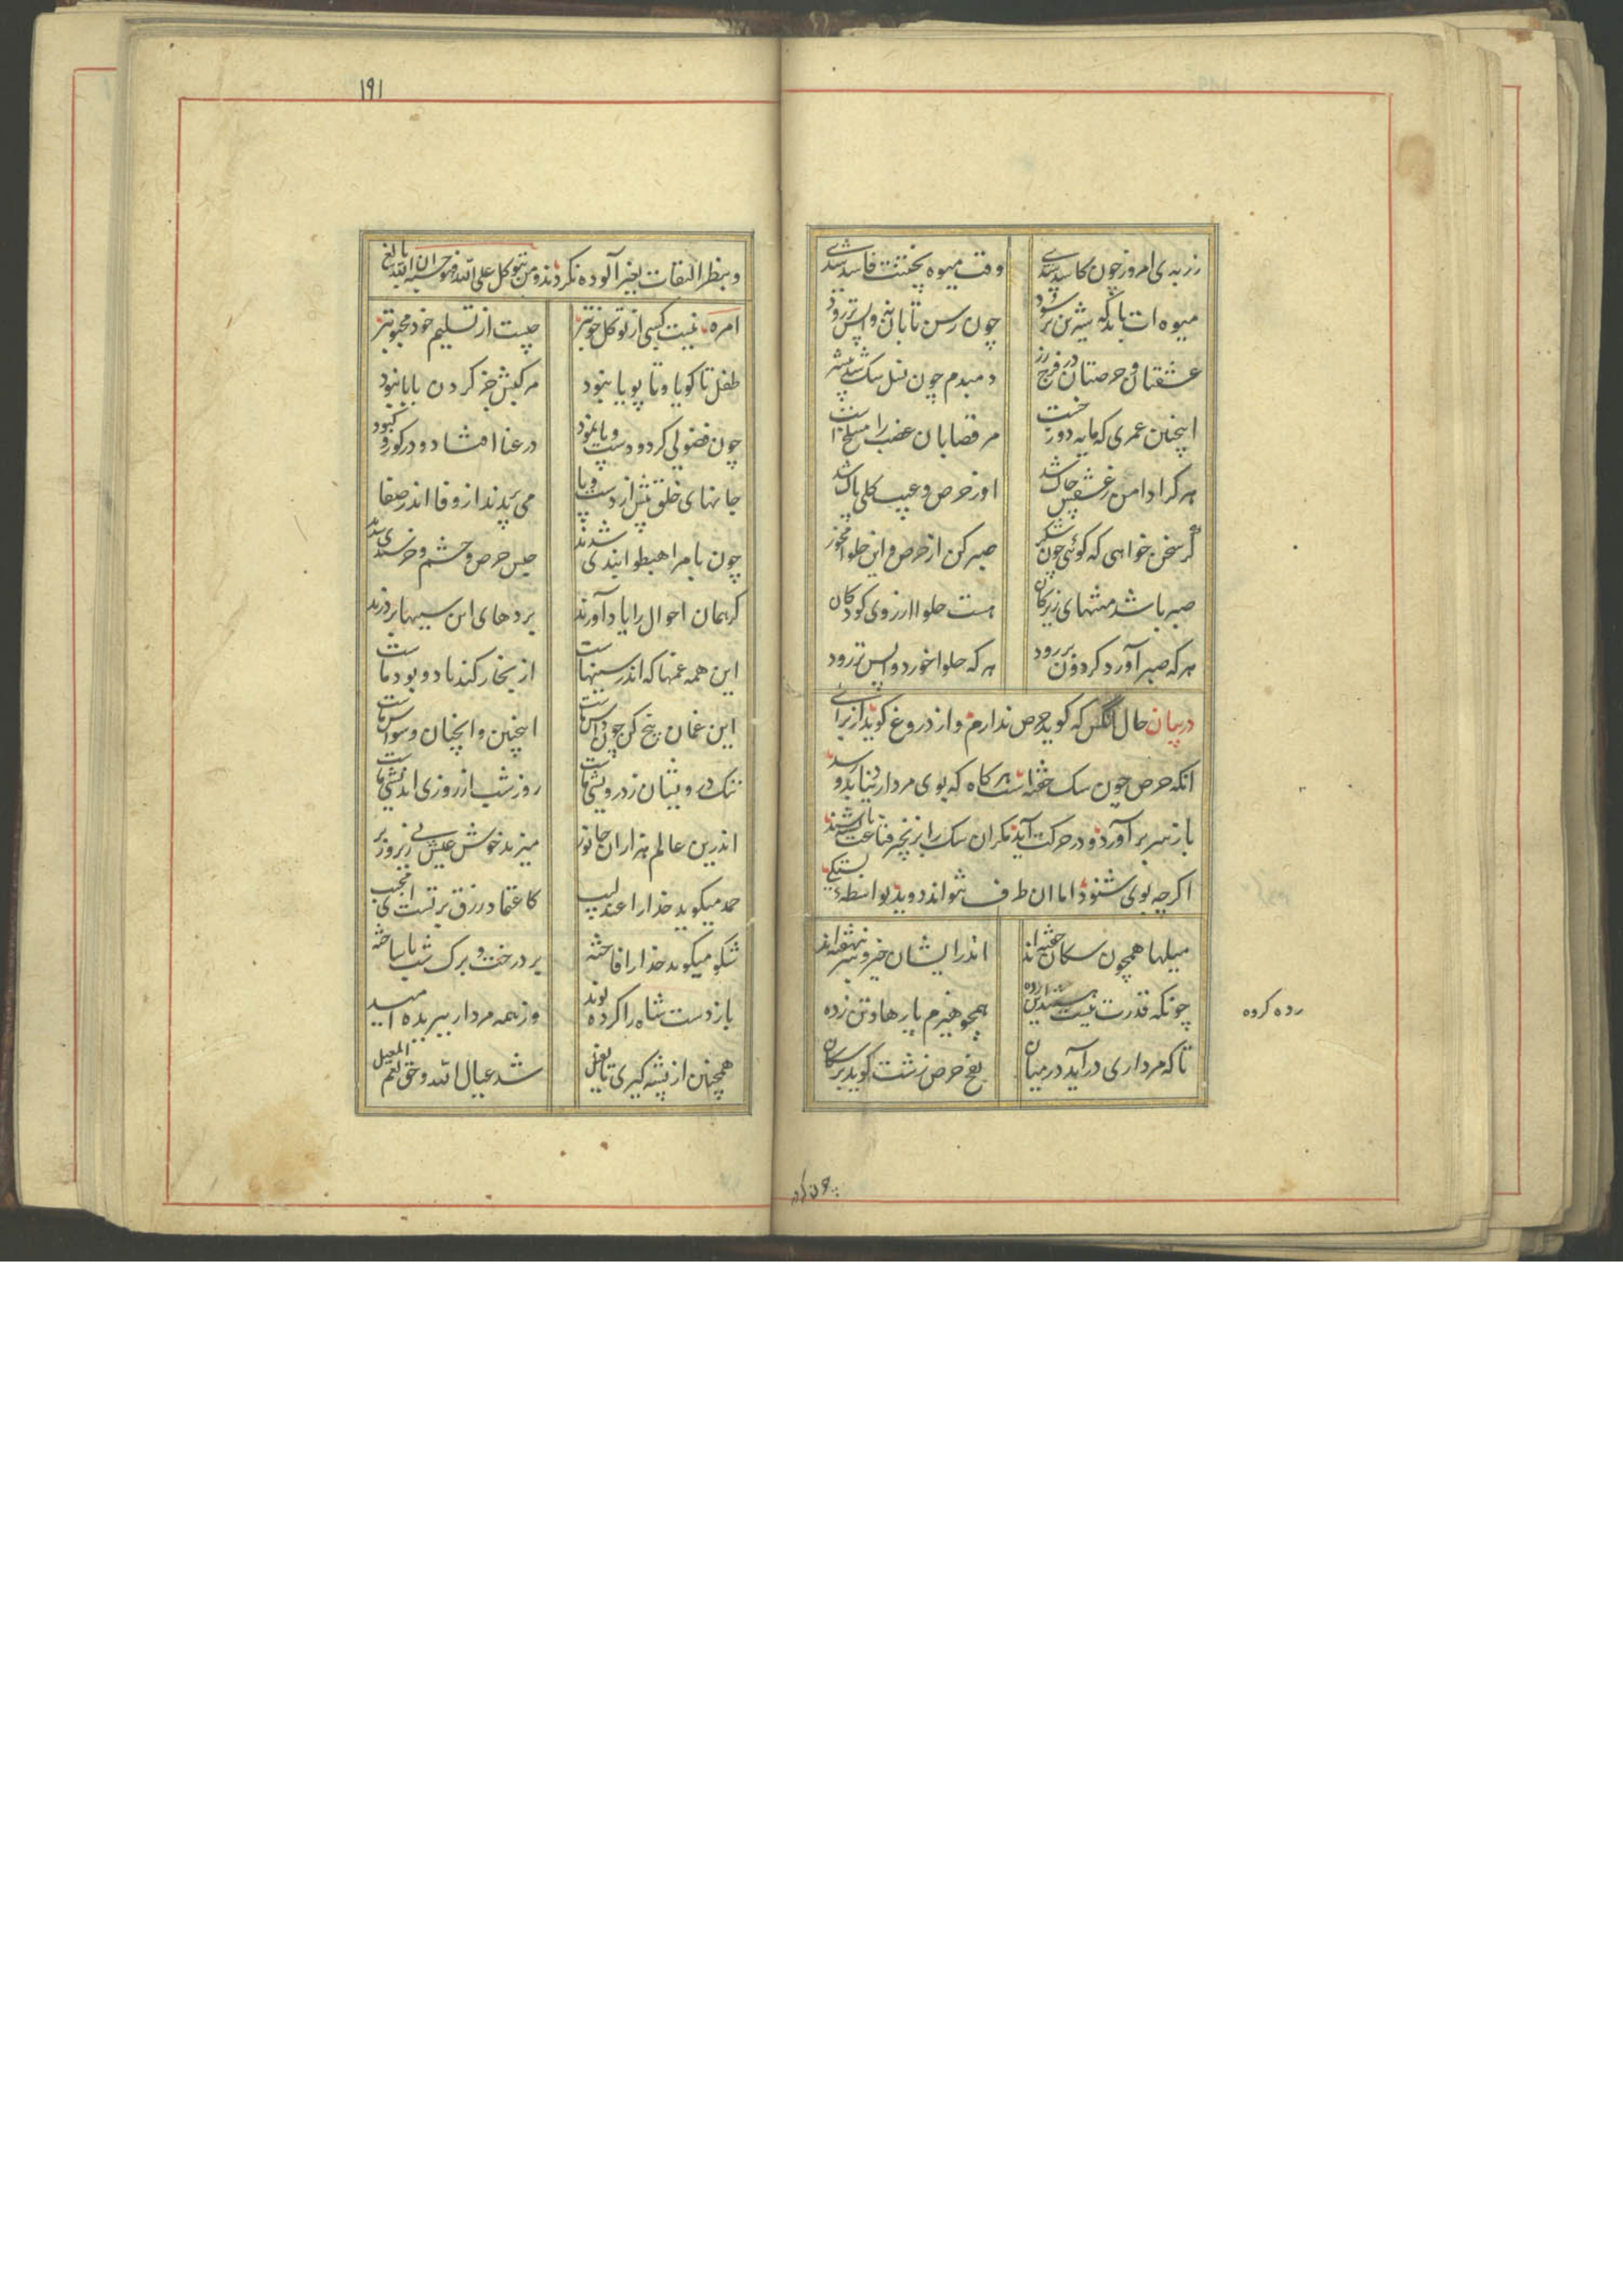 زر بدی امروز چون کاسد شدی وقت میوه پختنت فاسد شدی
میوه ات باید که شیرین تر شود چون رسن تابان نه واپس تر رود
عشقتان و حرصتان در فرج رز دمبدم چون نسل سگ
اینچنین عمری که مایه دوزخست مر قصابان غضب را مسلخ است
هر کرا دامن ز عشقی چاک شد او ز حرص و عیب کلی پاک شد
گر سخن خواهی که کوئی چون شکر صبر کن از حرص و این حلوا مخور
صبر باشد مشتهای زیرکان هست حلوا ارزوی کودکان
هرکه صبر آورد کردون بر رود هرکه حلوا خورد واپس تر رود
در بیان حال انکس که کوید حرص ندارم و از دروغ کوید از برای
انکه حرص چون سک خفته است هرکاه که بوی مردار دنیا بدو رسد
باز سر بر آورد و در حرکت آید مکر ان سک را بزنجیر قناعت بسته باشند
اکرچه بوی شنود اما ان طرف نتواند دوید بواسطه بستکی
میلها همچون سکان خفته اند اندر ایشان خیر و شر بنهفته اند
چونکه قدرت نیست همچو هیزم پارها و تن زده
رده کرده
تا که مرداری درآید در میان نفخ حرص زشت کوبد بر سکان
۱۹۱
و بنظر التفات بغیر آلوده نکردند و من یتوکل علی الله فهو حسبه ان الله بالغ
امره نیست کسبی از توکل خوبتر چیست از تسلیم خود محبوبتر
طفل تا کویا و تا پویا نبود مرکبش جز کردن بابا نبود
چون فضولی کرد و دست و پا نمود در عنا افتاد و در کور و کبود
جانهای خلق پیش از دست و پا می پریدند از وفا اندر صفا
چون بامر اهبطوا بندی شدند حبس حرص و خشم و خرسندی شدند
کر همان احوال را یاد آورند پردهای این سیها بر درند
این همه غمها که اندر سینهاست از بخار کند باد و بود ماست
این غمان بیخ کن چون داس ماست اینچنین و انچنان وسواس ماست
ننک درویشان ز درویشی ماست روز شب از روزی اندیشی ماست
اندرین عالم هزاران جانور میزید خوش عیش بی زیر و زبر
حمد میکوید خدا را عندلیب کاعتماد رزق بر تست ای مجیب
شکر میکوید خدا را فاخته بر درخت و برک شب ناساخته
باز دست شاه را کرده نوید وز همه مردار ببریده امید
همچنین از پشه کیری تا بفیل شد عیال الله و حق نعم المعیل